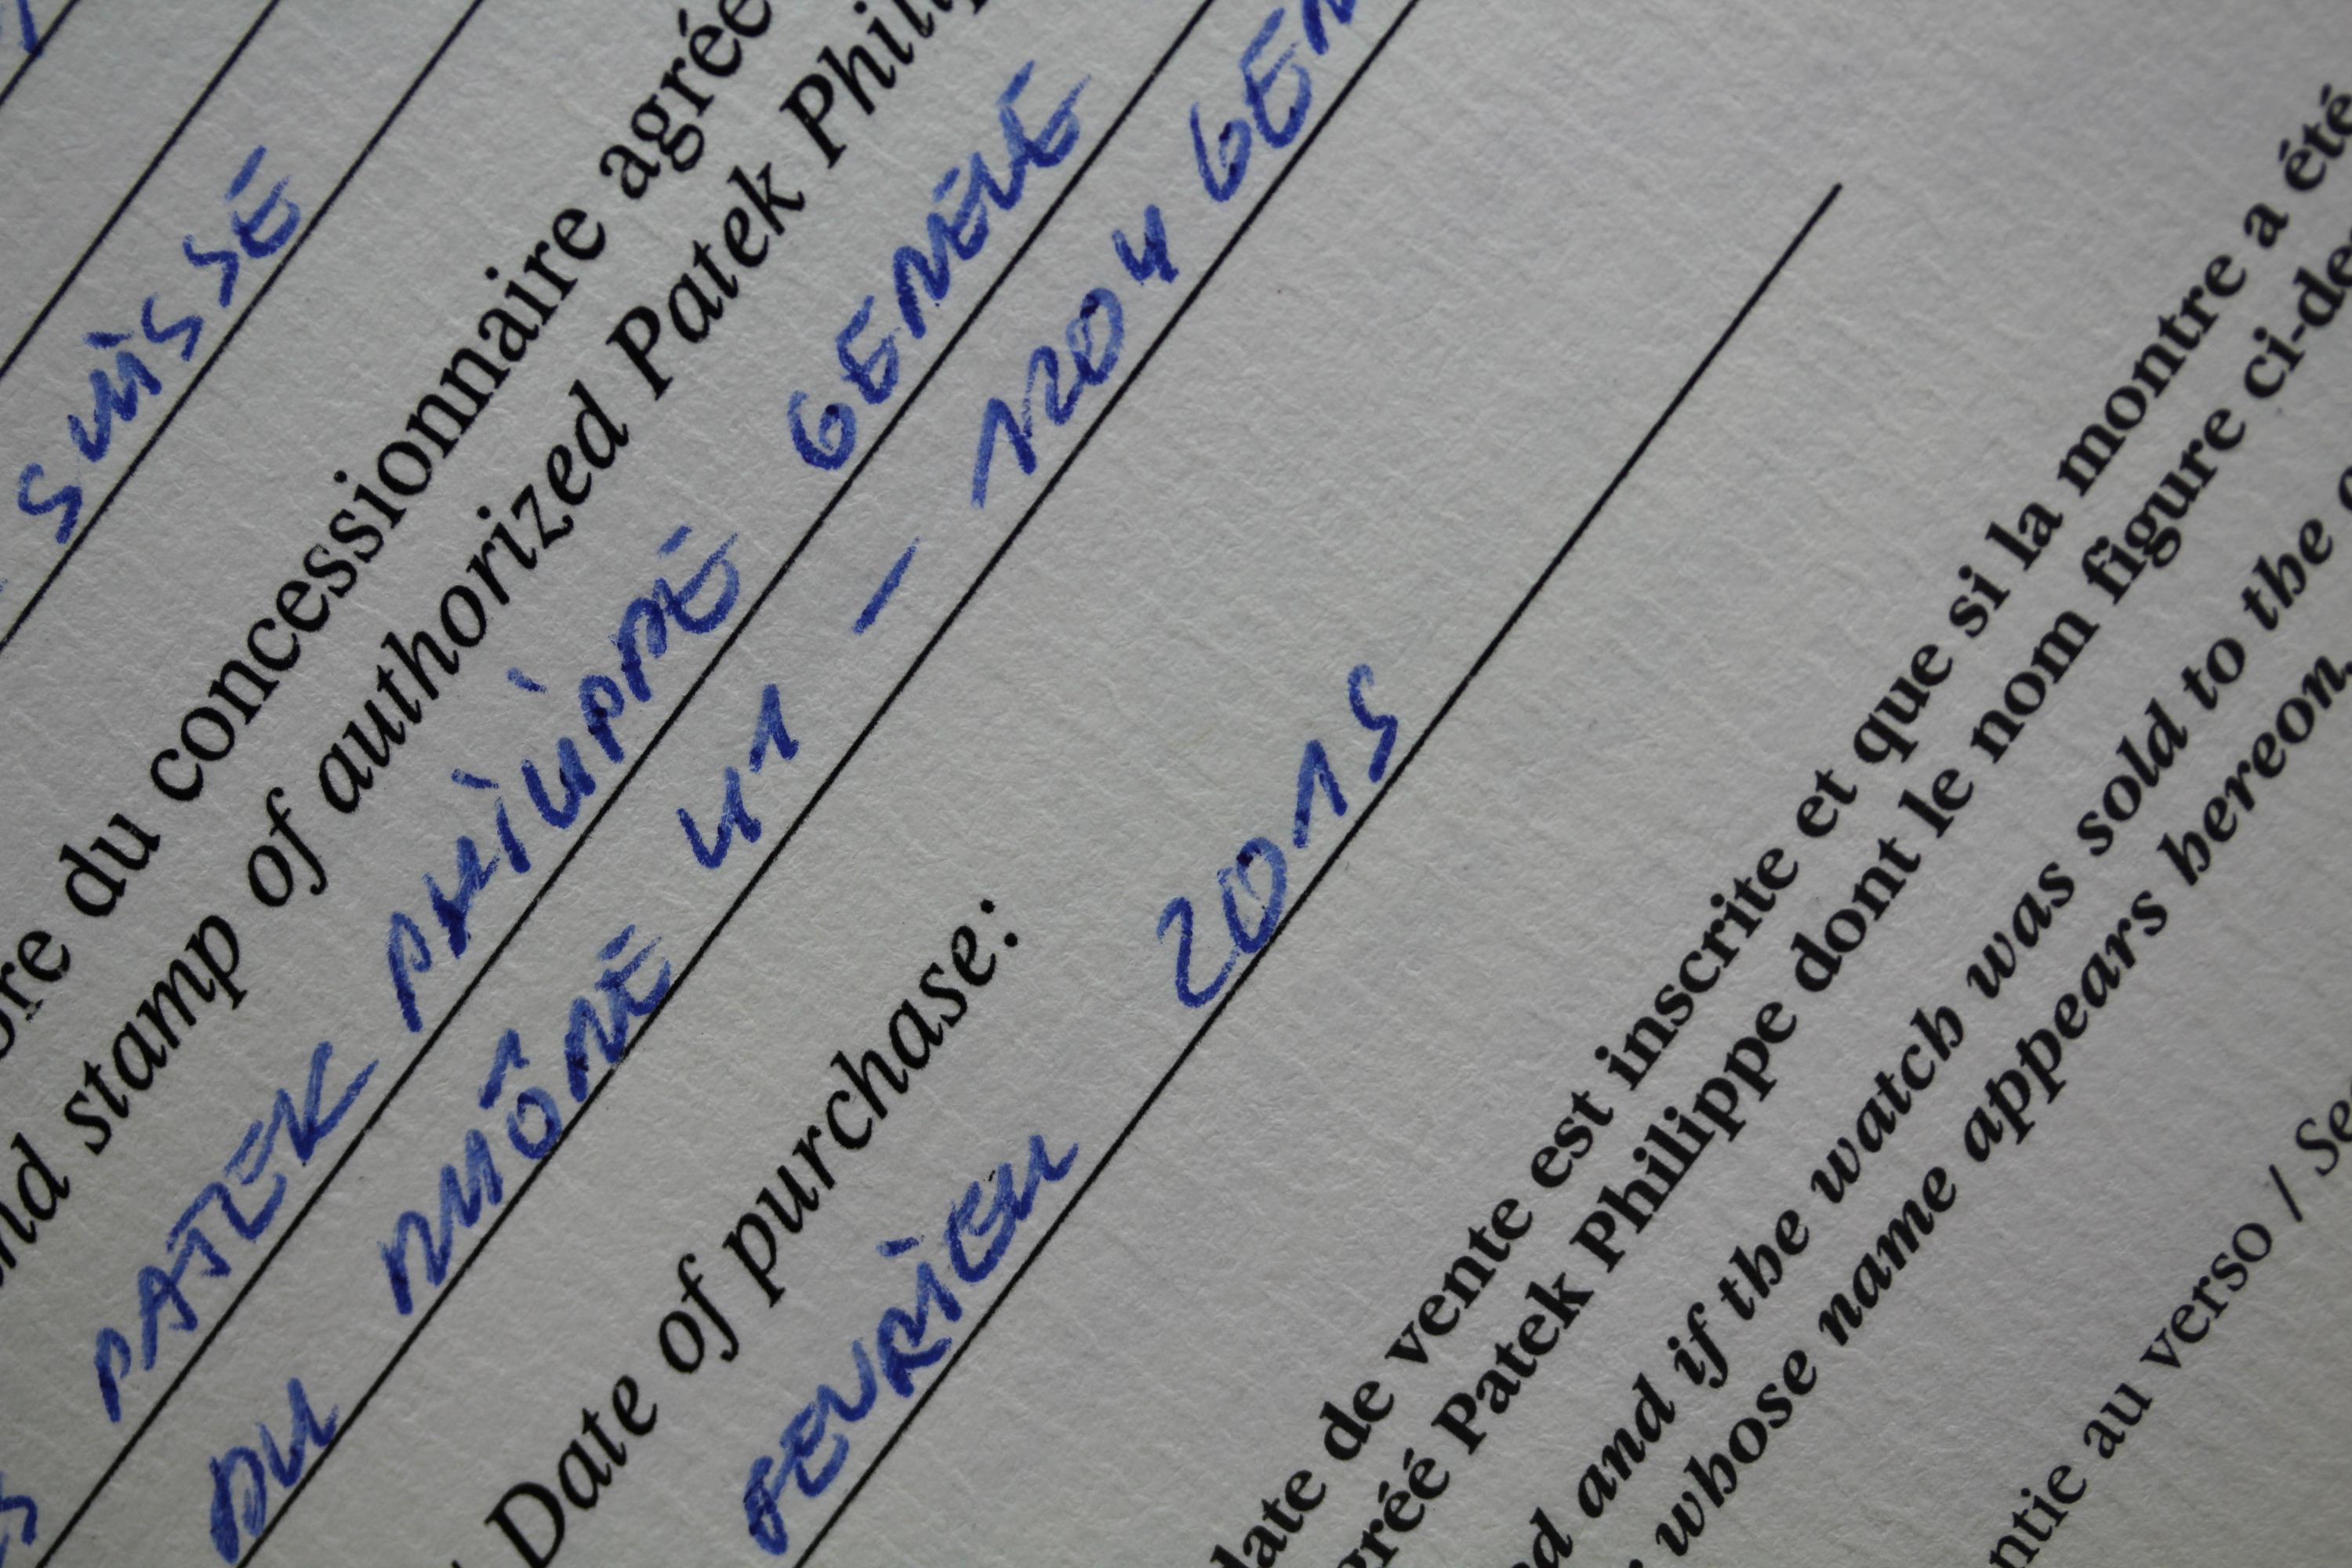 SUISSE
du concessionnaire agréé
stamp of authorized Patek
PATEK PHILIPPE GENEVE
DU RHÔNE 41 - 1204
Date of purchase:
FEVRIER 2015
date de vente est inscrite et que si la montre a été
Patek Philippe dont le nom figure
and if the watch was sold to the
whose name appears hereon.
au verso /